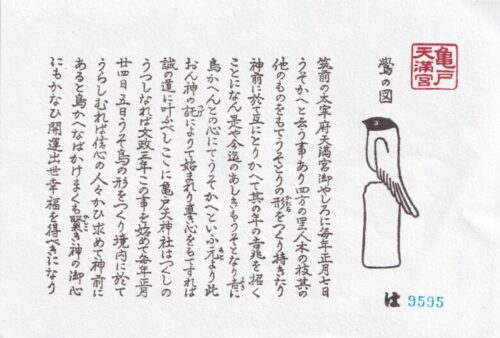 亀戸
天満宮
鷽の図
筑前の太宰府天満宮御やしろに毎年正月七日
うそかへと云う事あり四方の里人木の枝其の
他のものをもてうそどりの形をつくり持きたり
神前に於て互にとりかへて其の年の吉兆を招く
ことになん是や今迄のあしきもうそとなり吉に
鳥かへんとの心にてうそかへといふ元より此
おん神の託によりて始まれり真き心をもてすれば
誠の道に叶ふべしここに亀戸天神社はつくしの
うつしなれば文政三年この事を始めて毎年正月
廿四日五日うそ鳥の形をつくり境内に於て
うらしむれば信心の人々かひ求めて神前に
あると鳥かへなばかけまくも賢き神の御心
にもかなひ開運出世幸福を得べきになり
は 9595